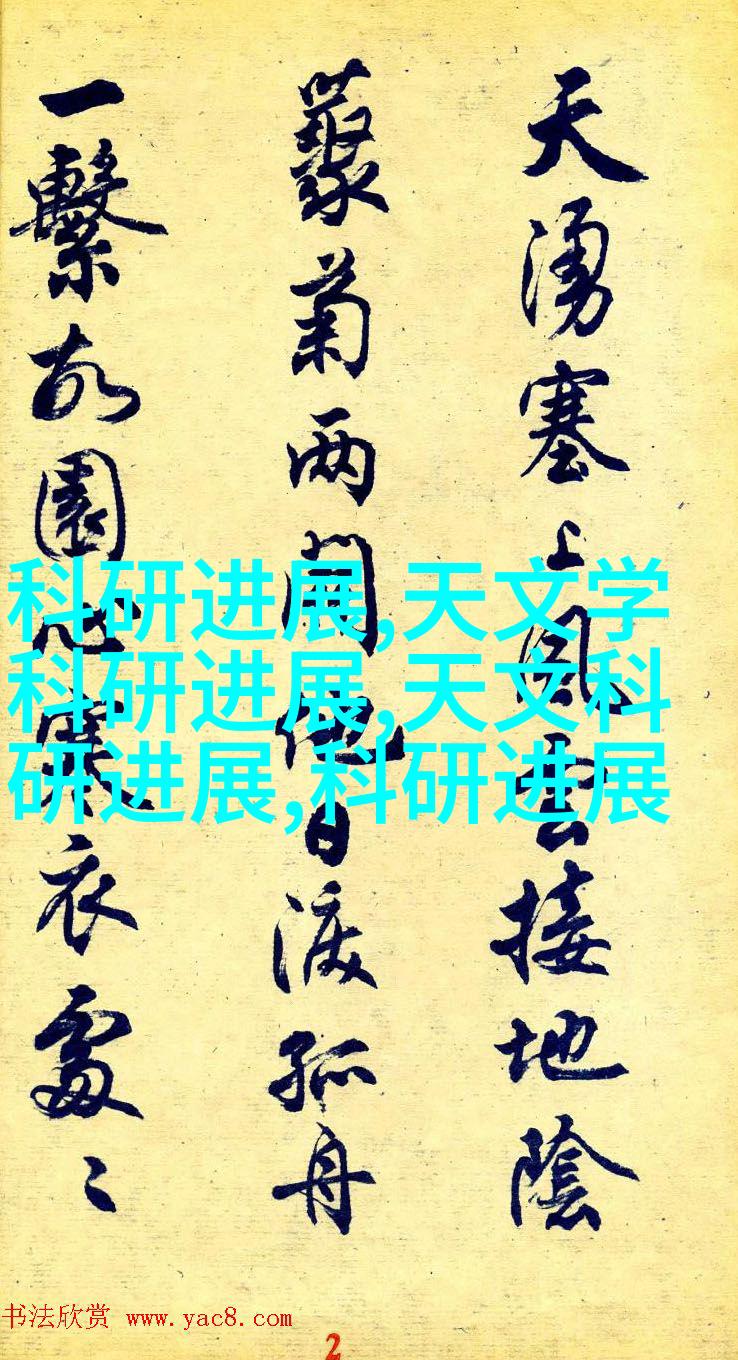 天湧塞上風雲接地陰
叢菊两開他日淚孤舟
一繫故園心寒衣處〻
科研进展,天文学
科研进展,天文科
研进展,科研进展
书法欣赏 www.yac8.com
2